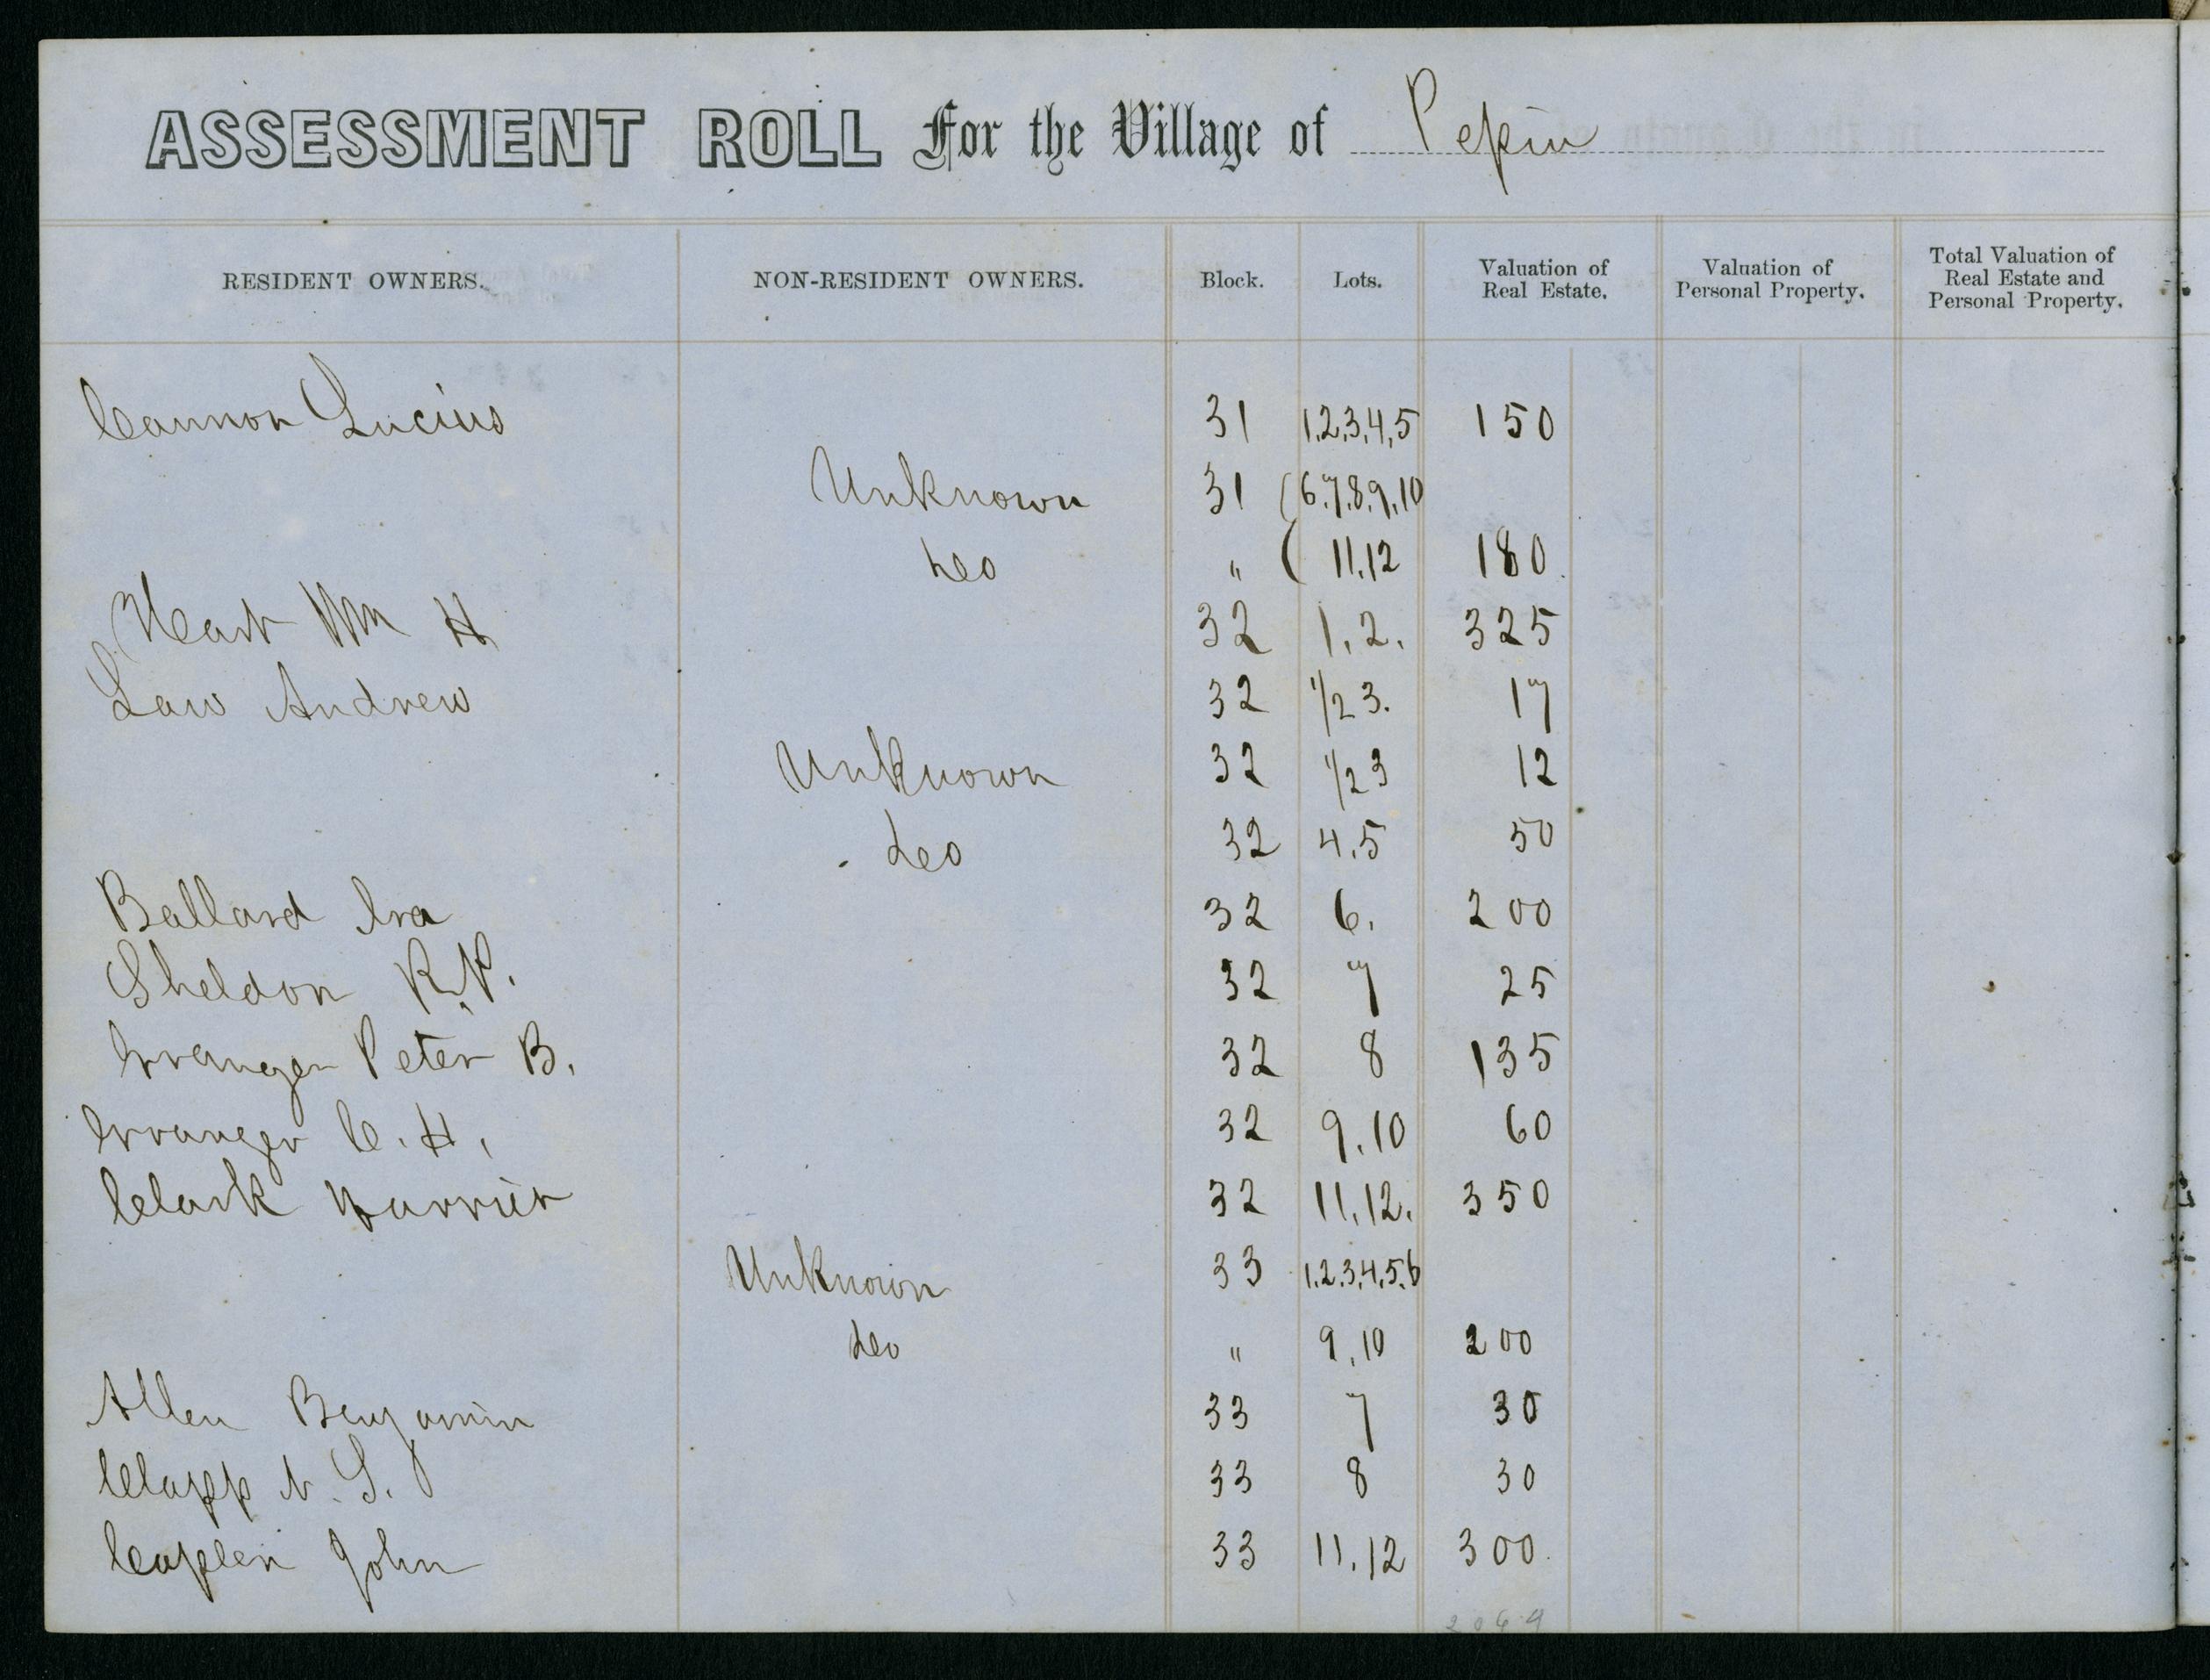 ASSESSMENT ROLL For the Village of Pepin
RESIDENT OWNERS. NON-RESIDENT OWNERS. Block. Lots. Valuation of Real Estate. Valuation of Personal Property. Total Valuation of Real Estate and Personal Property.
Cannon Lucius 31 1,2,3,4,5 150
Unknown 31 (6,7,8,9,10
deo " ( 11,12 180
Wm H 32 1,2. 325
Law Andrew 32 1/2 3. 17
Unknown 32 1/2 3 12
deo 32 4,5 50
Ballard Ira 32 6. 200
Sheldon R.P. 32 7 25
Granger Peter B. 32 8 135
Granger C. H. 32 9,10 60
Clark Harriet 32 11,12. 350
Unknown 33 1,2,3,4,5,6
deo " 9,10 200
Allen Benjamin 33 7 30
Clapp N. S. 33 8 30
Caplin John 33 11,12 300.
2064